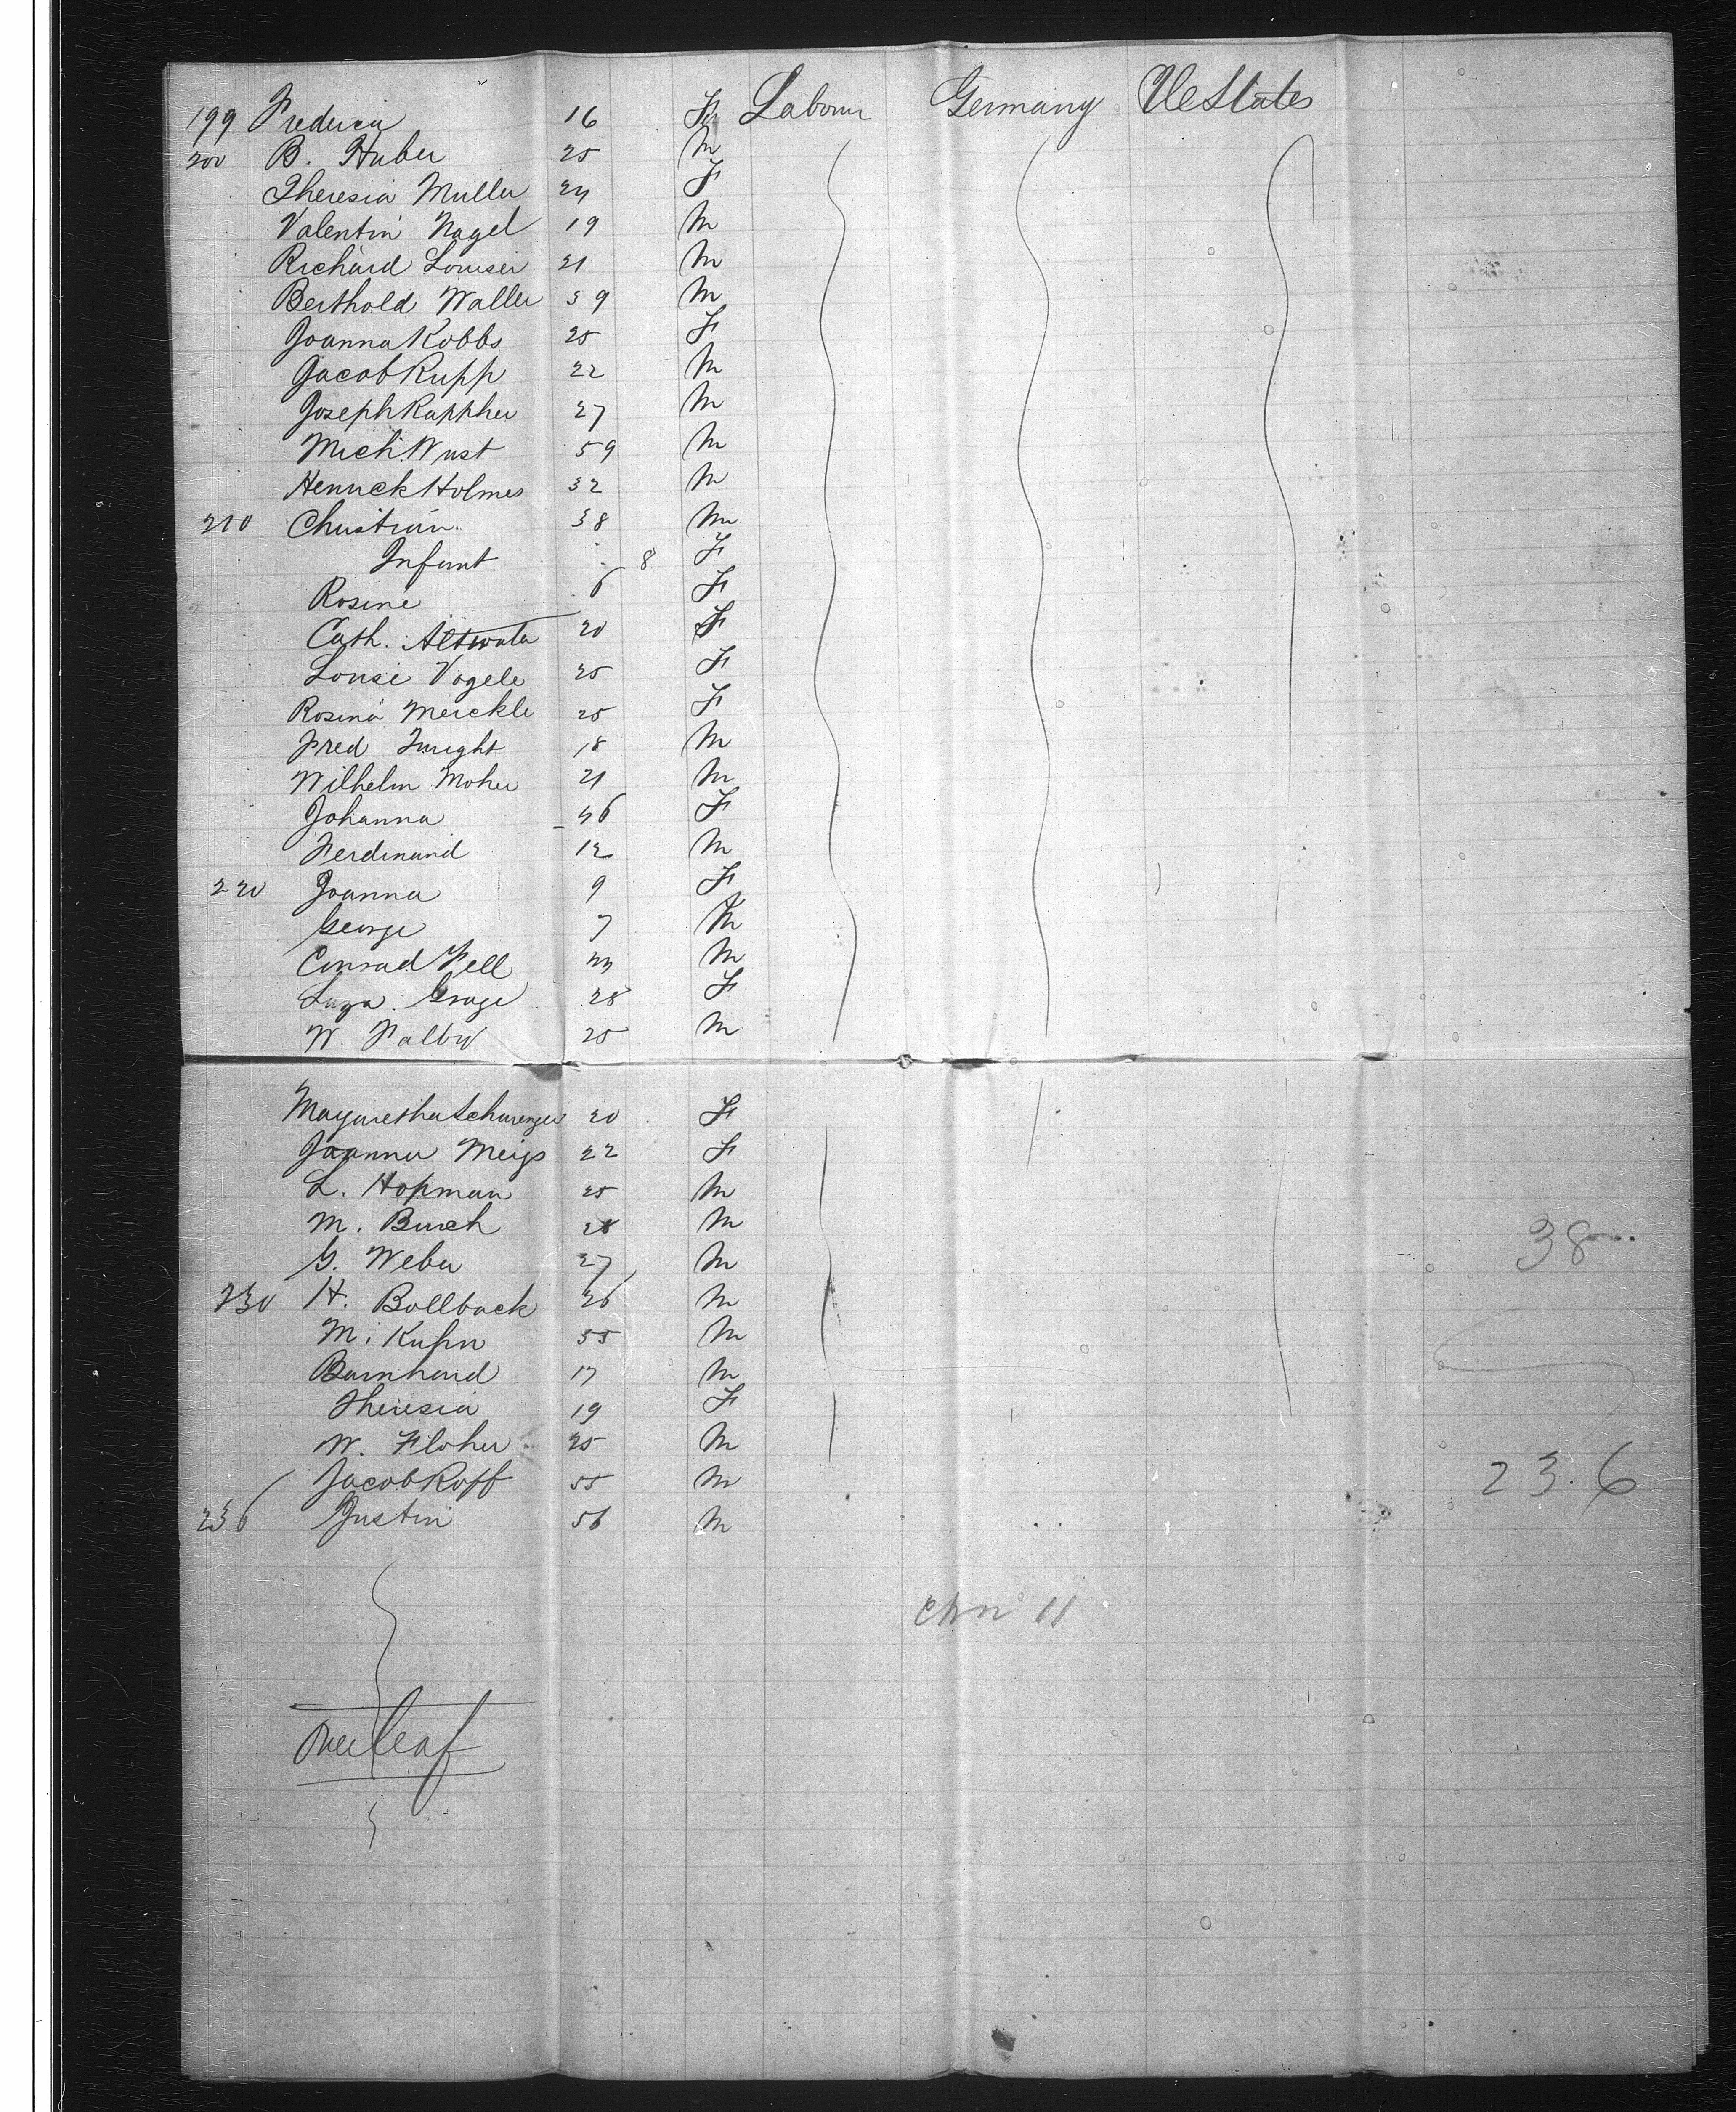 199 Frederica 16 F Labourer Germany U States
200 B. Huber 25 M
Theresia Muller 24 F
Valentin Nagel 19 M
Richard 21 M
Berthold Waller 39 M
Joanna Kobbs 25 F
Jacob Rupp 22 M
Joseph Kappher 27 M
Mich. Wust 59 M
Henrick Holmes 32 M
210 Christian 38 M
Infant 8 F
Rosine 6 F
Cath. Altwater 20 F
Louise Vogele 25 F
Rosina Merckle 25 F
Fred 18 M
Wilhelm Moher 21 M
Johanna 46 F
Ferdinand 12 M
220 Joanna 9 F
George 7 M
Conrad Fell M
28 F
W. 25 M
Margaretha 20 F
Joanna Meigs 22 F
L. Hopman 25 M
M. Burch 28 M
38
G. Weber 27 M
230 H. Bollback 26 M
M. Kuhn 55 M
Barnhard 17 M
Theresia 19 F
W. Floher 25 M
Jacob Roff 55 M
23.6
236 Justin 56 M
chn 11
Overleaf